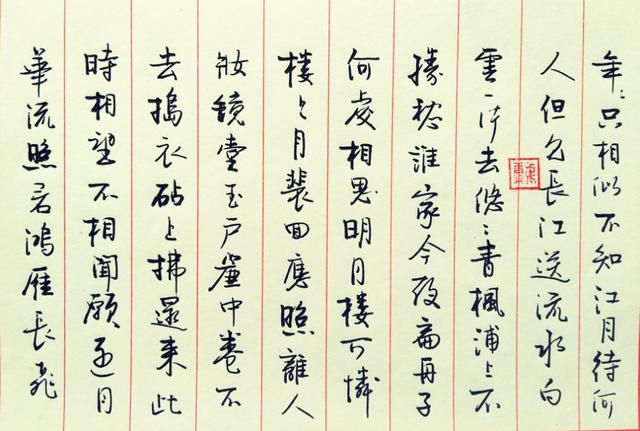 年〻只相似不知江月待何
人但見長江送流水白
雲一片去悠〻青楓浦上不
勝愁誰家今夜扁舟子
何處相思明月楼可憐
楼上月裴回應照離人
妝鏡臺玉戶簾中卷不
去搗衣砧上拂還来此
時相望不相聞願逐月
華流照君鴻雁長飛